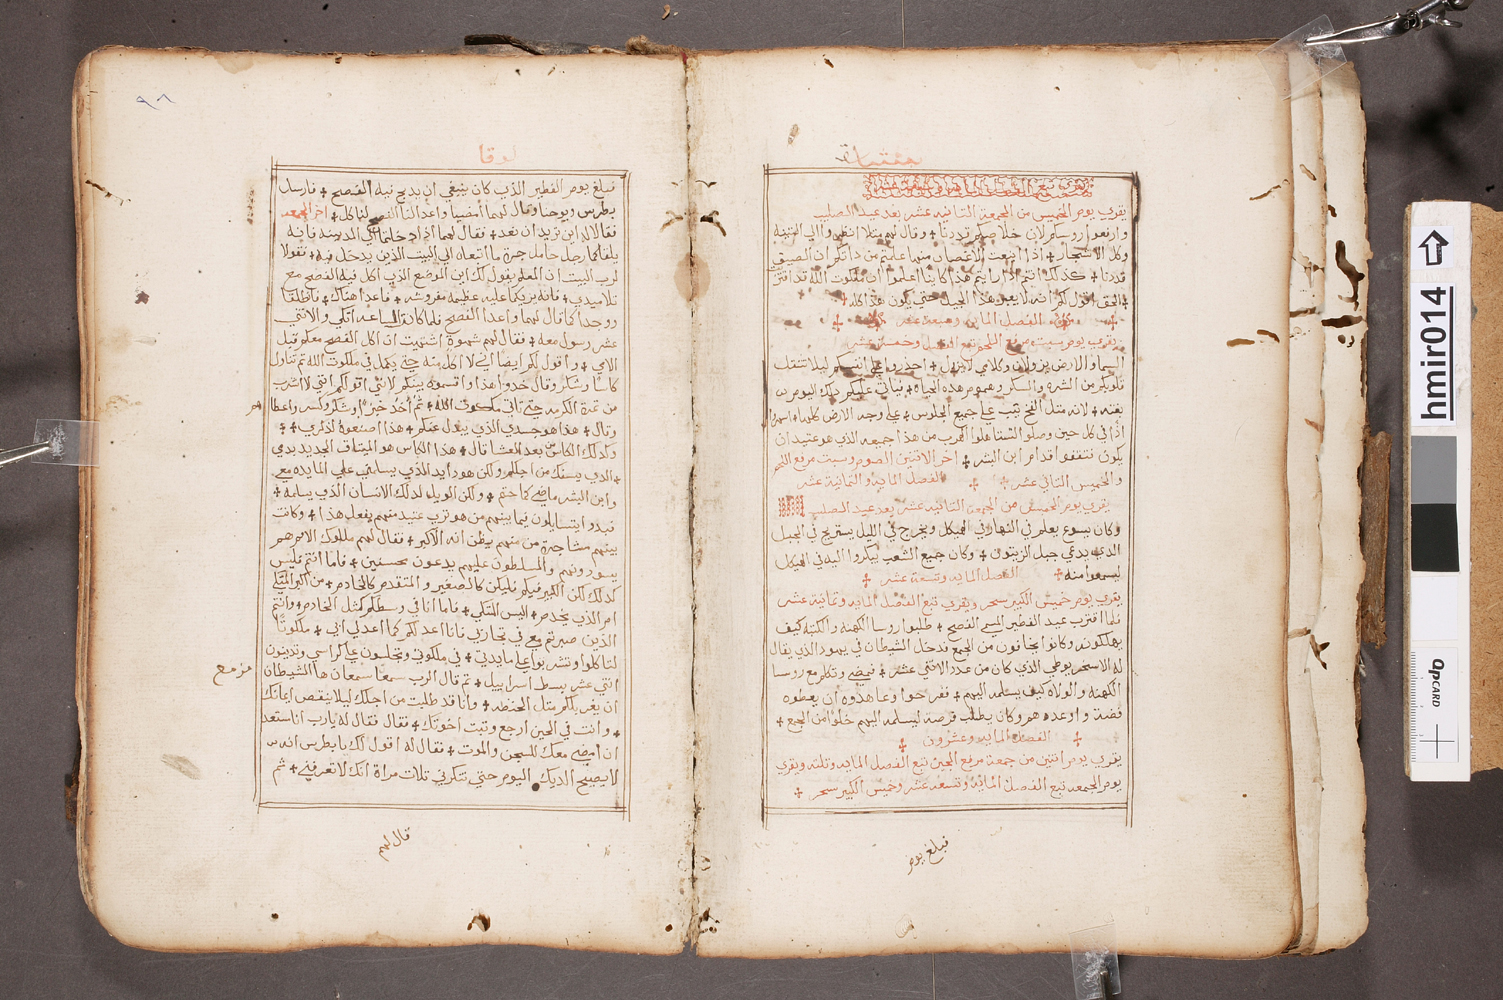 يقري يوم الخميس من الجمعة الثانيه عشر بعد عيد الصليب
وارفعوا روسكم لان خلاصكم قد دنا ✢ وقال لهم مثلا انظروا الي التينه
وكل الاشجار ✢ اذا اينعت الاغصان منها علمتم من ذاتكم ان الصيف
قد دنا ✢ كذلك انتم اذا رايتم هذا كاينا اعلموا ان ملكوت الله قد اقترب
الحق اقول لكم انه لا يعبر هذا الجيل حتي يكون هذا كله ✢
الفصل المايه وسبعة عشر
السما والارض يزولان وكلامي لا يزول ✢ احذروا علي انفسكم ليلا تثقل
قلوبكم من الشره والسكر وهموم هذه الحياه ✢ فياتي عليكم ذلك اليوم
بغته ✢ لانه مثل الفخ يثب علي جميع الجلوس ✢ علي وجه الارض كلها ✢ اسهروا
اذا في كل حين وصلوا لتستاهلوا الهرب من هذا جميعه الذي هو عتيد ان
يكون وتقفوا قدام ابن البشر ✢ اخر الاثنين الصوم وسبت مرفع اللحم
والخميس الثاني عشر ✢ الفصل المايه والثمانية عشر
يقري يوم الخميس من الجمعة الثانيه عشر بعد عيد الصليب
وكان يسوع يعلم في النهار في الهيكل ويخرج في الليل يستريح في الجبل
الذي يدعي جبل الزيتون ✢ وكان جميع الشعب يبكروا اليه في الهيكل
ليسمعوا منه ✢ الفصل المايه وتسعة عشر ✢
يقري يوم خميس الكبير سحر ويقري تبع الفصل المايه وثمانية عشر
فلما اقترب عيد الفطير المسمي الفصح ✢ طلبوا روسا الكهنه والكتبه كيف
يهلكونه وكانوا يخافون من الجمع فدخل الشيطان في يهودا الذي يقال
له الاسخريوطي الذي كان من عدد الاثني عشر ✢ فمضي وتكلم مع روسا
الكهنه والولاه كيف يسلمه اليهم ✢ ففرحوا وعاهدوه ان يعطوه
فضة واوعدهم وكان يطلب فرصة ليسلمه اليهم خلوا من الجمع ✢
الفصل المايه وعشرون
يقري يوم اثنين من جمعة مرفع الجبن تبع الفصل المايه وثلثه ويقري
يوم الجمعه تبع الفصل المايه وتسعه عشر وخميس الكبير سحر ✢
فبلغ يوم
٩٨
لوقا
فبلغ يوم الفطير الذي كان ينبغي ان يذبح فيه الفصح ✢ فارسل
بطرس ويوحنا وقال لهما امضيا واعدا لنا الفصح لناكل ✢ اخر الجمعه
فقالا له اين تريد ان نعد ✢ فقال لهما اذا دخلتما الي المدينه فانه
يلقاكما رجل حامل جرة ما اتبعاه الي البيت الذي يدخل فيه ✢ فقولا
لرب البيت ان المعلم يقول لك اين الموضع الذي اكل فيه الفصح مع
تلاميذي ✢ فانه يريكما عليه عظيمه مفروشه ✢ فاعدا هناك ✢ فانطلقا
ووجدا كما قال لهما واعدا الفصح فلما كانت الساعه اتكي والاثني
عشر رسول معه ✢ فقال لهم شهوة اشتهيت ان اكل الفصح معكم قبل
الامي ✢ واقول لكم ايضا اني لا اكل منه حتي يكمل في ملكوت الله ثم تناول
كاسا وشكر وقال خذوا هذا واقسموه بينكم لانني اقول لكم انني لا اشرب
من ثمرة الكرمه حتي تاتي ملكوت الله ✢ ثم اخذ خبزا وشكر وكسر واعطاهم
وقال ✢ هذا هو جسدي الذي يبذل عنكم ✢ هذا اصنعوه لذكري ✢
وكذلك الكاس من بعد العشا قال ✢ هذا الكاس هو الميثاق الجديد بدمي
الذي يسفك من اجلكم ولكن هوذا يد الذي يسلمني علي المايده معي
وابن البشر ماضي كما حتم ✢ ولكن الويل لذلك الانسان الذي يسلمه ✢
فبدوا يتسايلون فيما بينهم من هو تري عتيد منهم يفعل هذا ✢ وكانت
بينهم مشاجرة من منهم يظن انه الاكبر ✢ فقال لهم ملوك الامم هم
يسودونهم والمسلطون عليهم يدعون محسنين ✢ فاما انتم فليس
كذلك لكن الكبير فيكم فليكن كالصغير والمتقدم كالخادم ✢ من اكبر المتكي
ام الذي يخدم ✢ اليس المتكي ✢ فاما انا في وسطكم كمثل الخادم ✢ وانتم
الذين صبرتم معي في تجاربي فانا اعد لكم كما اعد لي ابي ✢ ملكوتا
لتاكلوا وتشربوا علي مايدتي ✢ في ملكوتي وتجلسون علي كراسي وتدينون
اثني عشر سبط اسراييل ✢ ثم قال الرب سمعان سمعان ها الشيطان
ان يغربلكم مثل الحنطه ✢ وانا قد طلبت من اجلك ليلا ينقص ايمانك
✢ وانت في الحين ارجع وثبت اخوتك ✢ فقال له يارب انا مستعد
ان امضي معك للسجن والموت ✢ فقال له اقول لك يا بطرس انه
لا يصيح الديك اليوم حتي تنكرني ثلات مراة انك لا تعرفني ✢ ثم
قال لهم
hmir014
QPCARD